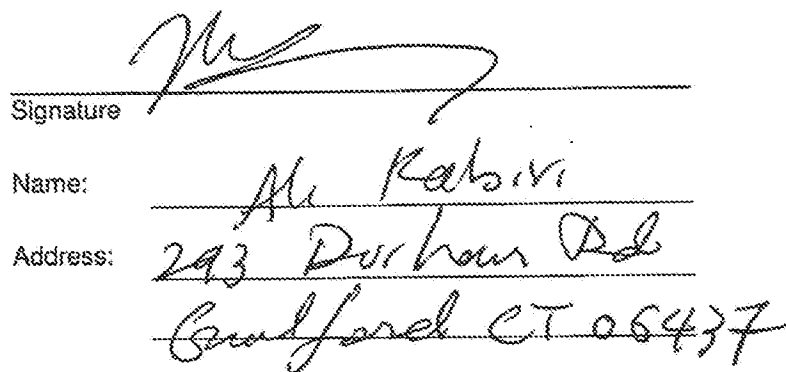 Signature
Name: Ali Kabiri
Address: 293 Durham Rd
Guilford CT 06437